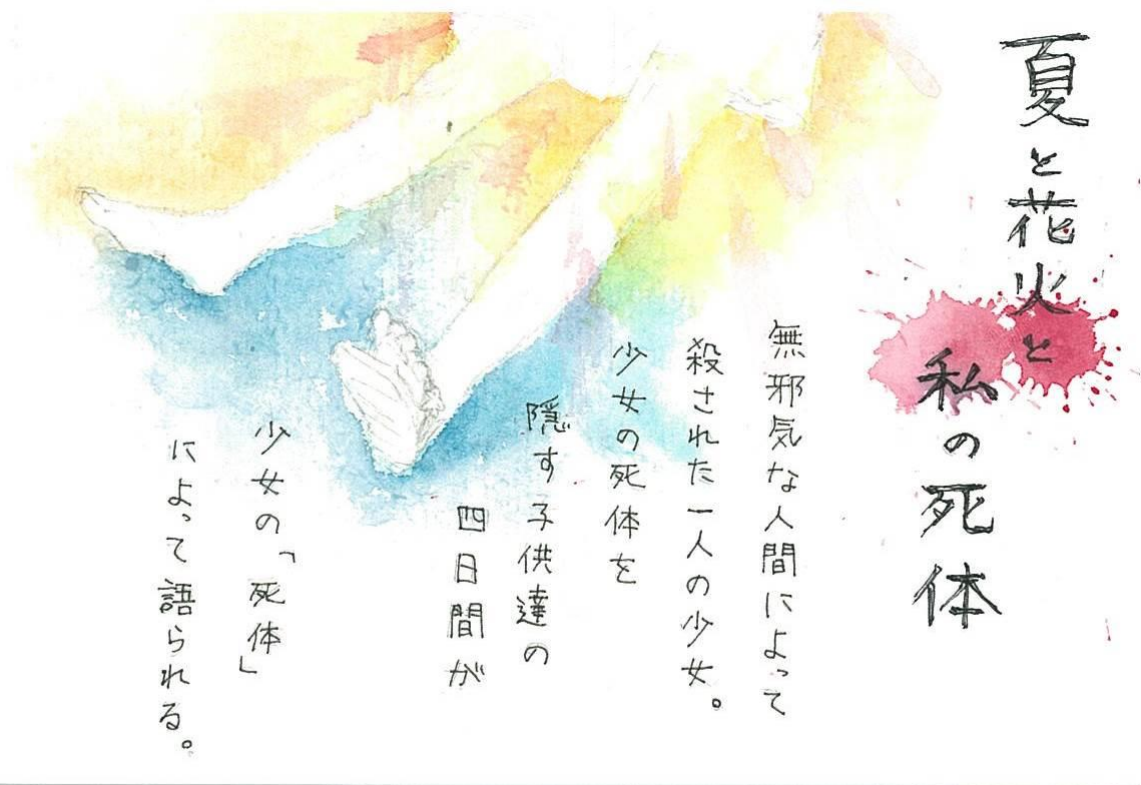 夏と花火と
私の死体
無邪気な人間によって
殺された一人の少女。
少女の死体を
隠す子供達の
四日間が
少女の「死体」
によって語られる。